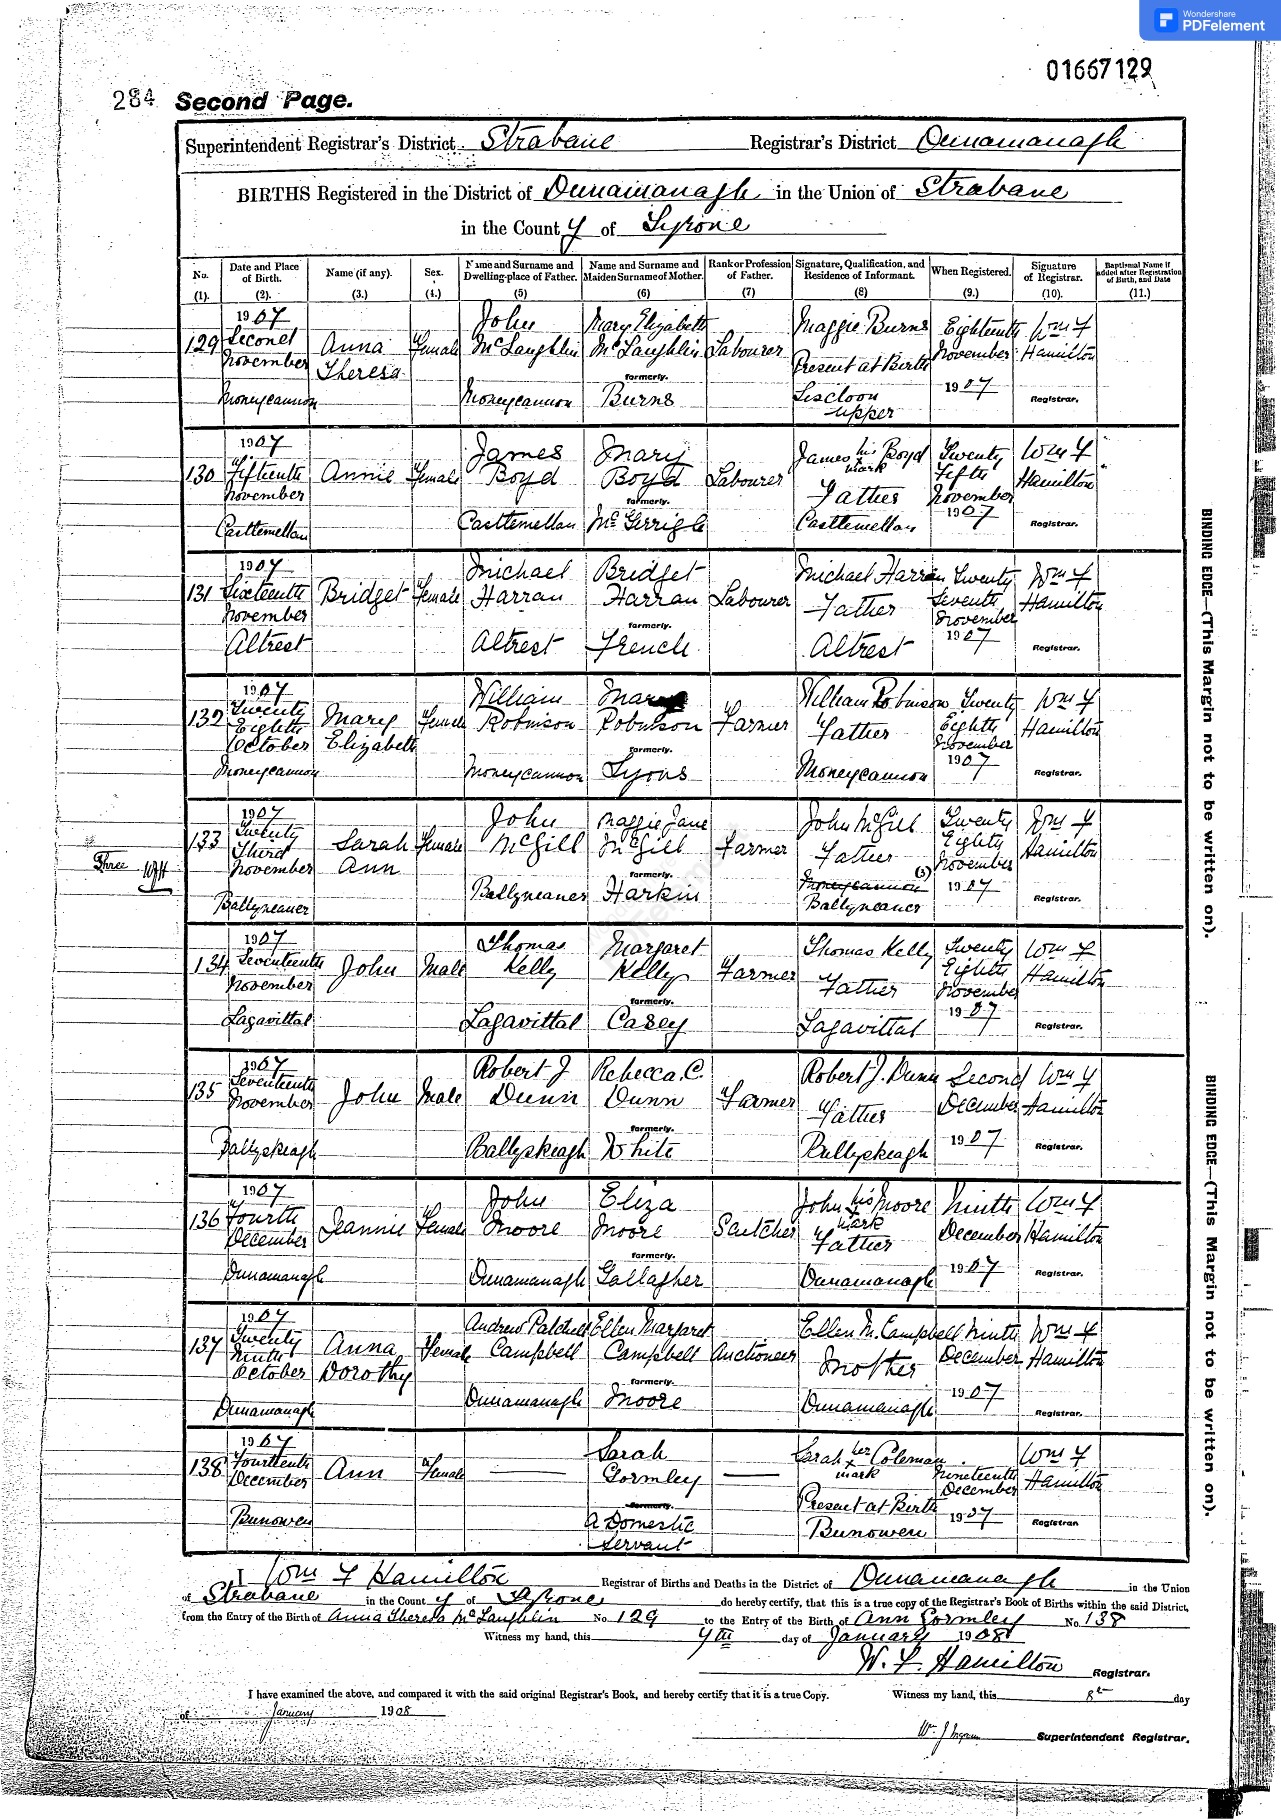 Wondershare
PDFelement
01667129
284 Second Page.
Superintendent Registrar's District Strabane Registrar's District Dunamanagh
BIRTHS Registered in the District of Dunamanagh in the Union of Strabane
in the County of Tyrone
No. (1). Date and Place of Birth. (2). Name (if any). (3.) Sex. (4.) Name and Surname and Dwelling-place of Father. (5) Name and Surname and Maiden Surname of Mother. (6) Rank or Profession of Father. (7) Signature, Qualification, and Residence of Informant. (8) When Registered. (9.) Signature of Registrar. (10). Baptismal Name if added after Registration of Birth, and Date (11.)
129 1907 Second November Moneycannon Anna Theresa Female John McLaughlin Moneycannon Mary Elizabeth McLaughlin formerly. Burns Labourer Maggie Burns Present at Birth Liscloon upper Eighteenth November 1907 Wm F Hamilton Registrar.
130 1907 Fifteenth November Castlemellan Annie Female James Boyd Castlemellan Mary Boyd formerly. McGerrigle Labourer James his mark Boyd Father Castlemellan Twenty Fifth November 1907 Wm F Hamilton Registrar.
131 1907 Sixteenth November Altrest Bridget Female Michael Harran Altrest Bridget Harran formerly. French Labourer Michael Harran Father Altrest Twenty Seventh November 1907 Wm F Hamilton Registrar.
132 1907 Twenty Eighth October Moneycannon Mary Elizabeth Female William Robinson Moneycannon Mary Robinson formerly. Lyons Farmer William Robinson Father Moneycannon Twenty Eighth November 1907 Wm F Hamilton Registrar.
Three WFH
133 1907 Twenty Third November Ballyneaner Sarah Ann Female John McGill Ballyneaner Maggie Jane McGill formerly. Harkin Farmer John McGill Father Moneycannon (3) Ballyneaner Twenty Eighth November 1907 Wm F Hamilton Registrar.
134 1907 Seventeenth November Lagavittal John Male Thomas Kelly Lagavittal Margaret Kelly formerly. Casey Farmer Thomas Kelly Father Lagavittal Twenty Eighth November 1907 Wm F Hamilton Registrar.
135 1907 Seventeenth November Ballyskeagh John Male Robert J Dunn Ballyskeagh Rebecca C. Dunn formerly. White Farmer Robert J. Dunn Father Ballyskeagh Second December 1907 Wm F Hamilton Registrar.
136 1907 Fourth December Dunamanagh Jeannie Female John Moore Dunamanagh Eliza Moore formerly. Gallagher Scutcher John his x mark Moore Father Dunamanagh Ninth December 1907 Wm F Hamilton Registrar.
137 1907 Twenty Ninth October Dunamanagh Anna Dorothy Female Andrew Patchell Campbell Dunamanagh Ellen Margaret Campbell formerly. Moore Auctioneer Ellen M. Campbell Mother Dunamanagh Ninth December 1907 Wm F Hamilton Registrar.
138 1907 Fourteenth December Bunowen Ann Female Sarah Gormley formerly. a Domestic Servant Sarah her x mark Coleman Present at Birth Bunowen Nineteenth December 1907 Wm F Hamilton Registrar
I Wm F Hamilton Registrar of Births and Deaths in the District of Dunamanagh in the Union
of Strabane in the County of Tyrone do hereby certify, that this is a true copy of the Registrar's Book of Births within the said District,
from the Entry of the Birth of Anna Theresa McLaughlin No. 129 to the Entry of the Birth of Ann Gormley No. 138
Witness my hand, this 7th day of January 1908
W. F. Hamilton Registrar.
I have examined the above, and compared it with the said original Registrar's Book, and hereby certify that it is a true Copy. Witness my hand, this 8th day
of January 1908
Superintendent Registrar.
BINDING EDGE—(This Margin not to be written on).
BINDING EDGE—(This Margin not to be written on).